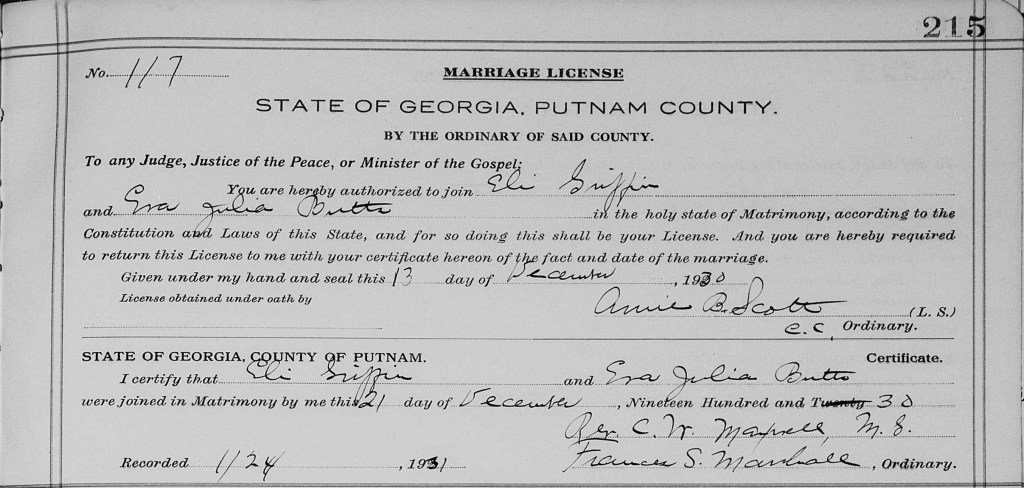 215
No. 117
MARRIAGE LICENSE
STATE OF GEORGIA, PUTNAM COUNTY.
BY THE ORDINARY OF SAID COUNTY.
To any Judge, Justice of the Peace, or Minister of the Gospel:
You are hereby authorized to join Eli Griffin
and Eva Julia Butts in the holy state of Matrimony, according to the
Constitution and Laws of this State, and for so doing this shall be your License. And you are hereby required
to return this License to me with your certificate hereon of the fact and date of the marriage.
Given under my hand and seal this 13 day of December, 1930
License obtained under oath by
Annie B. Scott (L. S.)
C.C. Ordinary.
STATE OF GEORGIA, COUNTY OF PUTNAM. Certificate.
I certify that Eli Griffin and Eva Julia Butts
were joined in Matrimony by me this 21 day of December, Nineteen Hundred and Twenty 30
Rev. C. W. Maxwell, M. G.
Recorded 1/24, 1931 Frances S. Marshall, Ordinary.